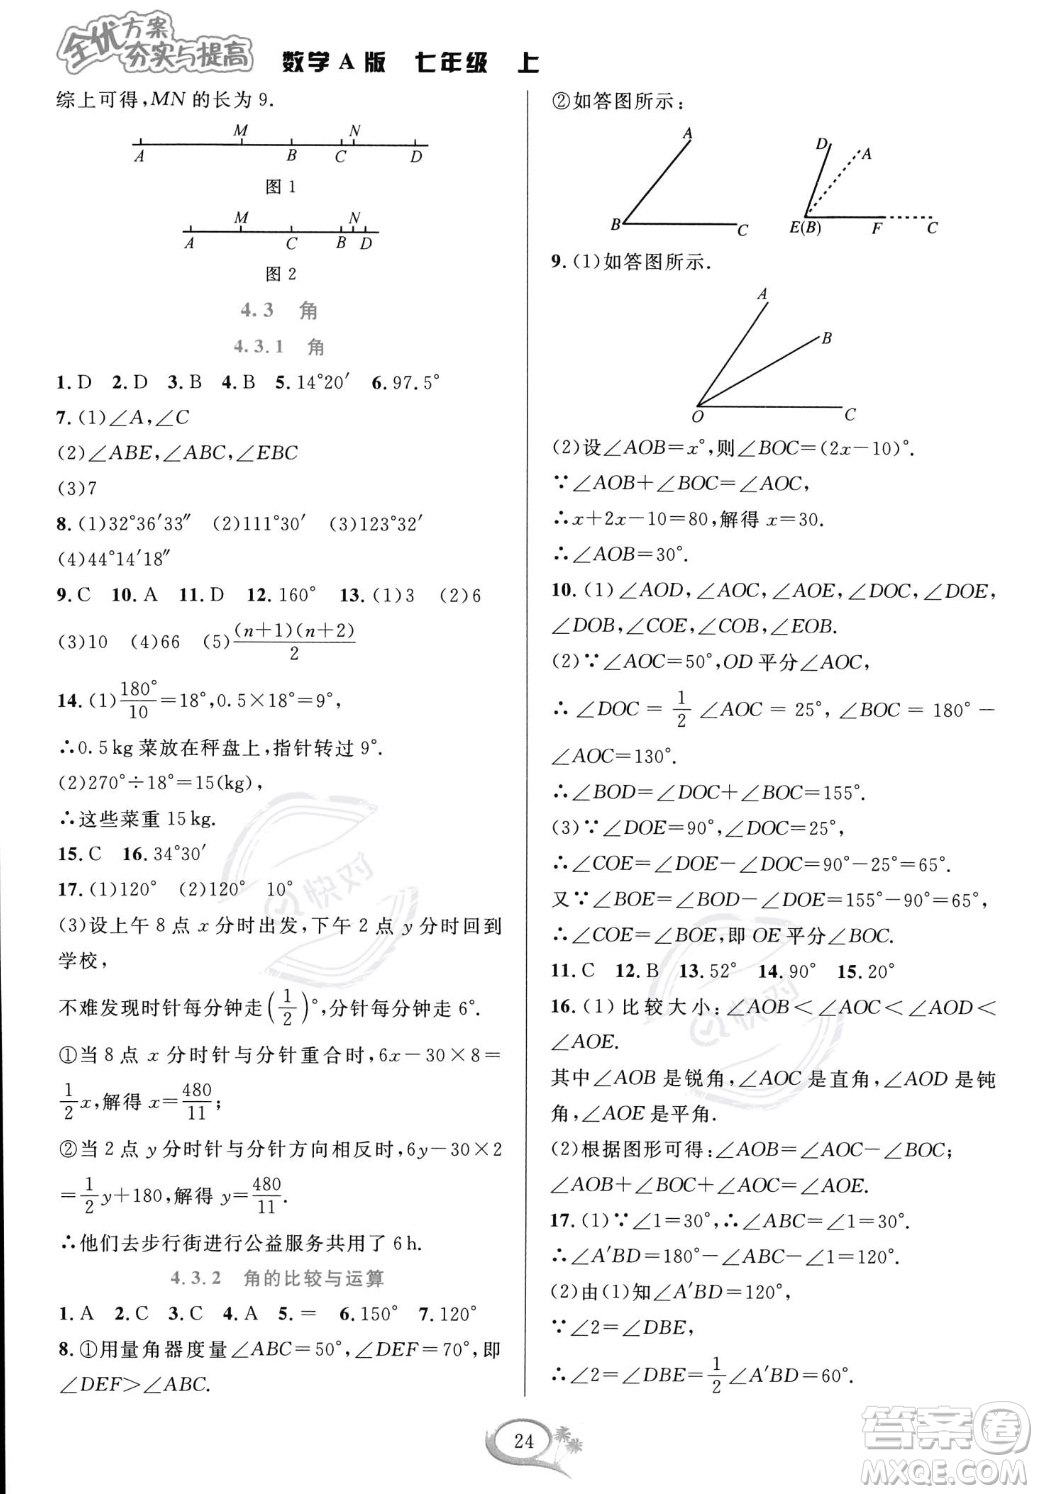 全优方案
夯实与提高
数学A版 七年级 上
综上可得,MN的长为9.
A M B C N D
图1
A M C B N D
图2
4.3 角
4.3.1 角
1.D 2.D 3.B 4.B 5.14°20′ 6.97.5°
7.(1)∠A,∠C
(2)∠ABE,∠ABC,∠EBC
(3)7
8.(1)32°36′33″ (2)111°30′ (3)123°32′
(4)44°14′18″
9.C 10.A 11.D 12.160° 13.(1)3 (2)6
(3)10 (4)66 (5)(n+1)(n+2)/2
14.(1)180°/10=18°,0.5×18=9°,
∴0.5 kg菜放在秤盘上,指针转过9°.
(2)270°÷18°=15(kg),
∴这些菜重15 kg.
15.C 16.34°30′
17.(1)120° (2)120° 10°
(3)设上午8点x分时出发,下午2点y分时回到
学校,
不难发现时针每分钟走(1/2)°,分针每分钟走6°.
①当8点x分时针与分针重合时,6x-30×8=
1/2x,解得x=480/11;
②当2点y分时针与分针方向相反时,6y-30×2
=1/2y+180,解得y=480/11.
∴他们去步行街进行公益服务共用了6 h.
4.3.2 角的比较与运算
1.A 2.C 3.C 4.A 5.= 6.150° 7.120°
8.①用量角器度量∠ABC=50°,∠DEF=70°,即
∠DEF>∠ABC.
②如答图所示:
A B C
D A E(B) F C
9.(1)如答图所示.
A B O C
(2)设∠AOB=x°,则∠BOC=(2x-10)°.
∵∠AOB+∠BOC=∠AOC,
∴x+2x-10=80,解得x=30.
∴∠AOB=30°.
10.(1)∠AOD,∠AOC,∠AOE,∠DOC,∠DOE,
∠DOB,∠COE,∠COB,∠EOB.
(2)∵∠AOC=50°,OD平分∠AOC,
∴∠DOC=1/2∠AOC=25°,∠BOC=180°-
∠AOC=130°.
∴∠BOD=∠DOC+∠BOC=155°.
(3)∵∠DOE=90°,∠DOC=25°,
∴∠COE=∠DOE-∠DOC=90°-25°=65°.
又∵∠BOE=∠BOD-∠DOE=155°-90°=65°,
∴∠COE=∠BOE,即OE平分∠BOC.
11.C 12.B 13.52° 14.90° 15.20°
16.(1)比较大小:∠AOB<∠AOC<∠AOD<
∠AOE.
其中∠AOB是锐角,∠AOC是直角,∠AOD是钝
角,∠AOE是平角.
(2)根据图形可得:∠AOB=∠AOC-∠BOC;
∠AOB+∠BOC+∠AOC=∠AOE.
17.(1)∵∠1=30°,∴∠ABC=∠1=30°.
∴∠A′BD=180°-30°-30°=120°.
(2)由(1)知∠A′BD=120°,
∵∠2=∠DBE,
∴∠2=∠DBE=1/2∠A′BD=60°.
24
快对
快对
答案卷
MXQE.COM